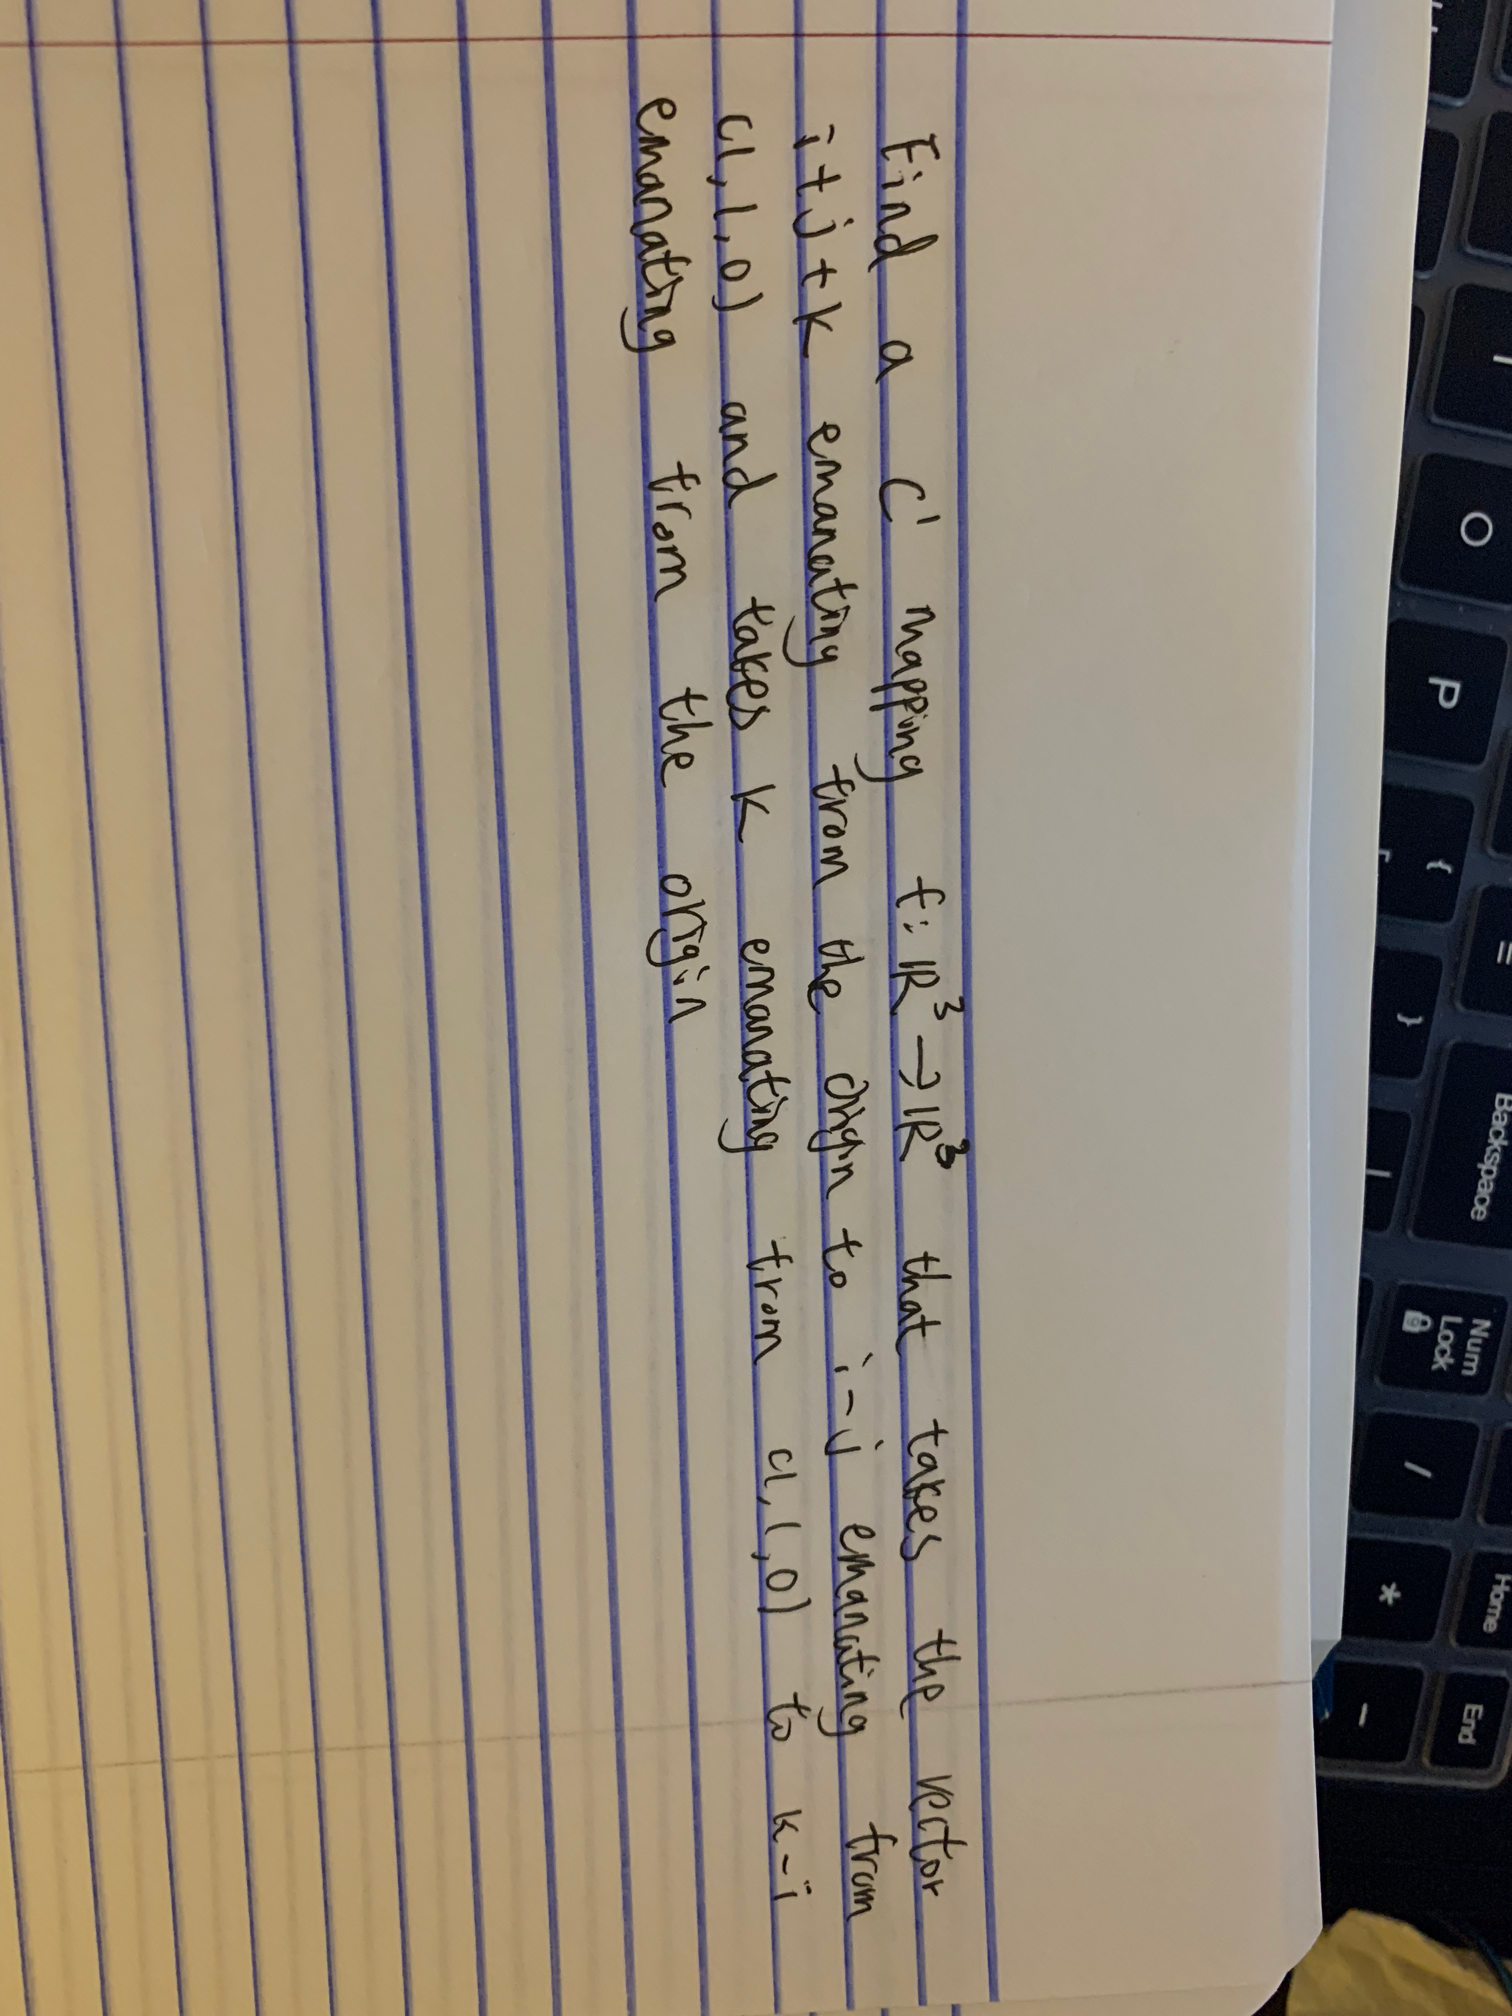 Find a C' mapping f: R³ → R³ that takes the vector
i+j+k emanating from the origin to i-j emanating from
(1,1,0) and takes k emanating from (1,1,0) to k-i
emanating from the origin
O
P
{
[
}
=
|
Backspace
Num
Lock
/
*
-
Home
End